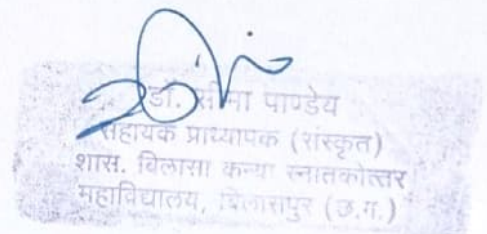 डॉ. सीमा पाण्डेय
सहायक प्राध्यापक (संस्कृत)
शास. बिलासा कन्या स्नातकोत्तर
महाविद्यालय, बिलासपुर (छ.ग.)